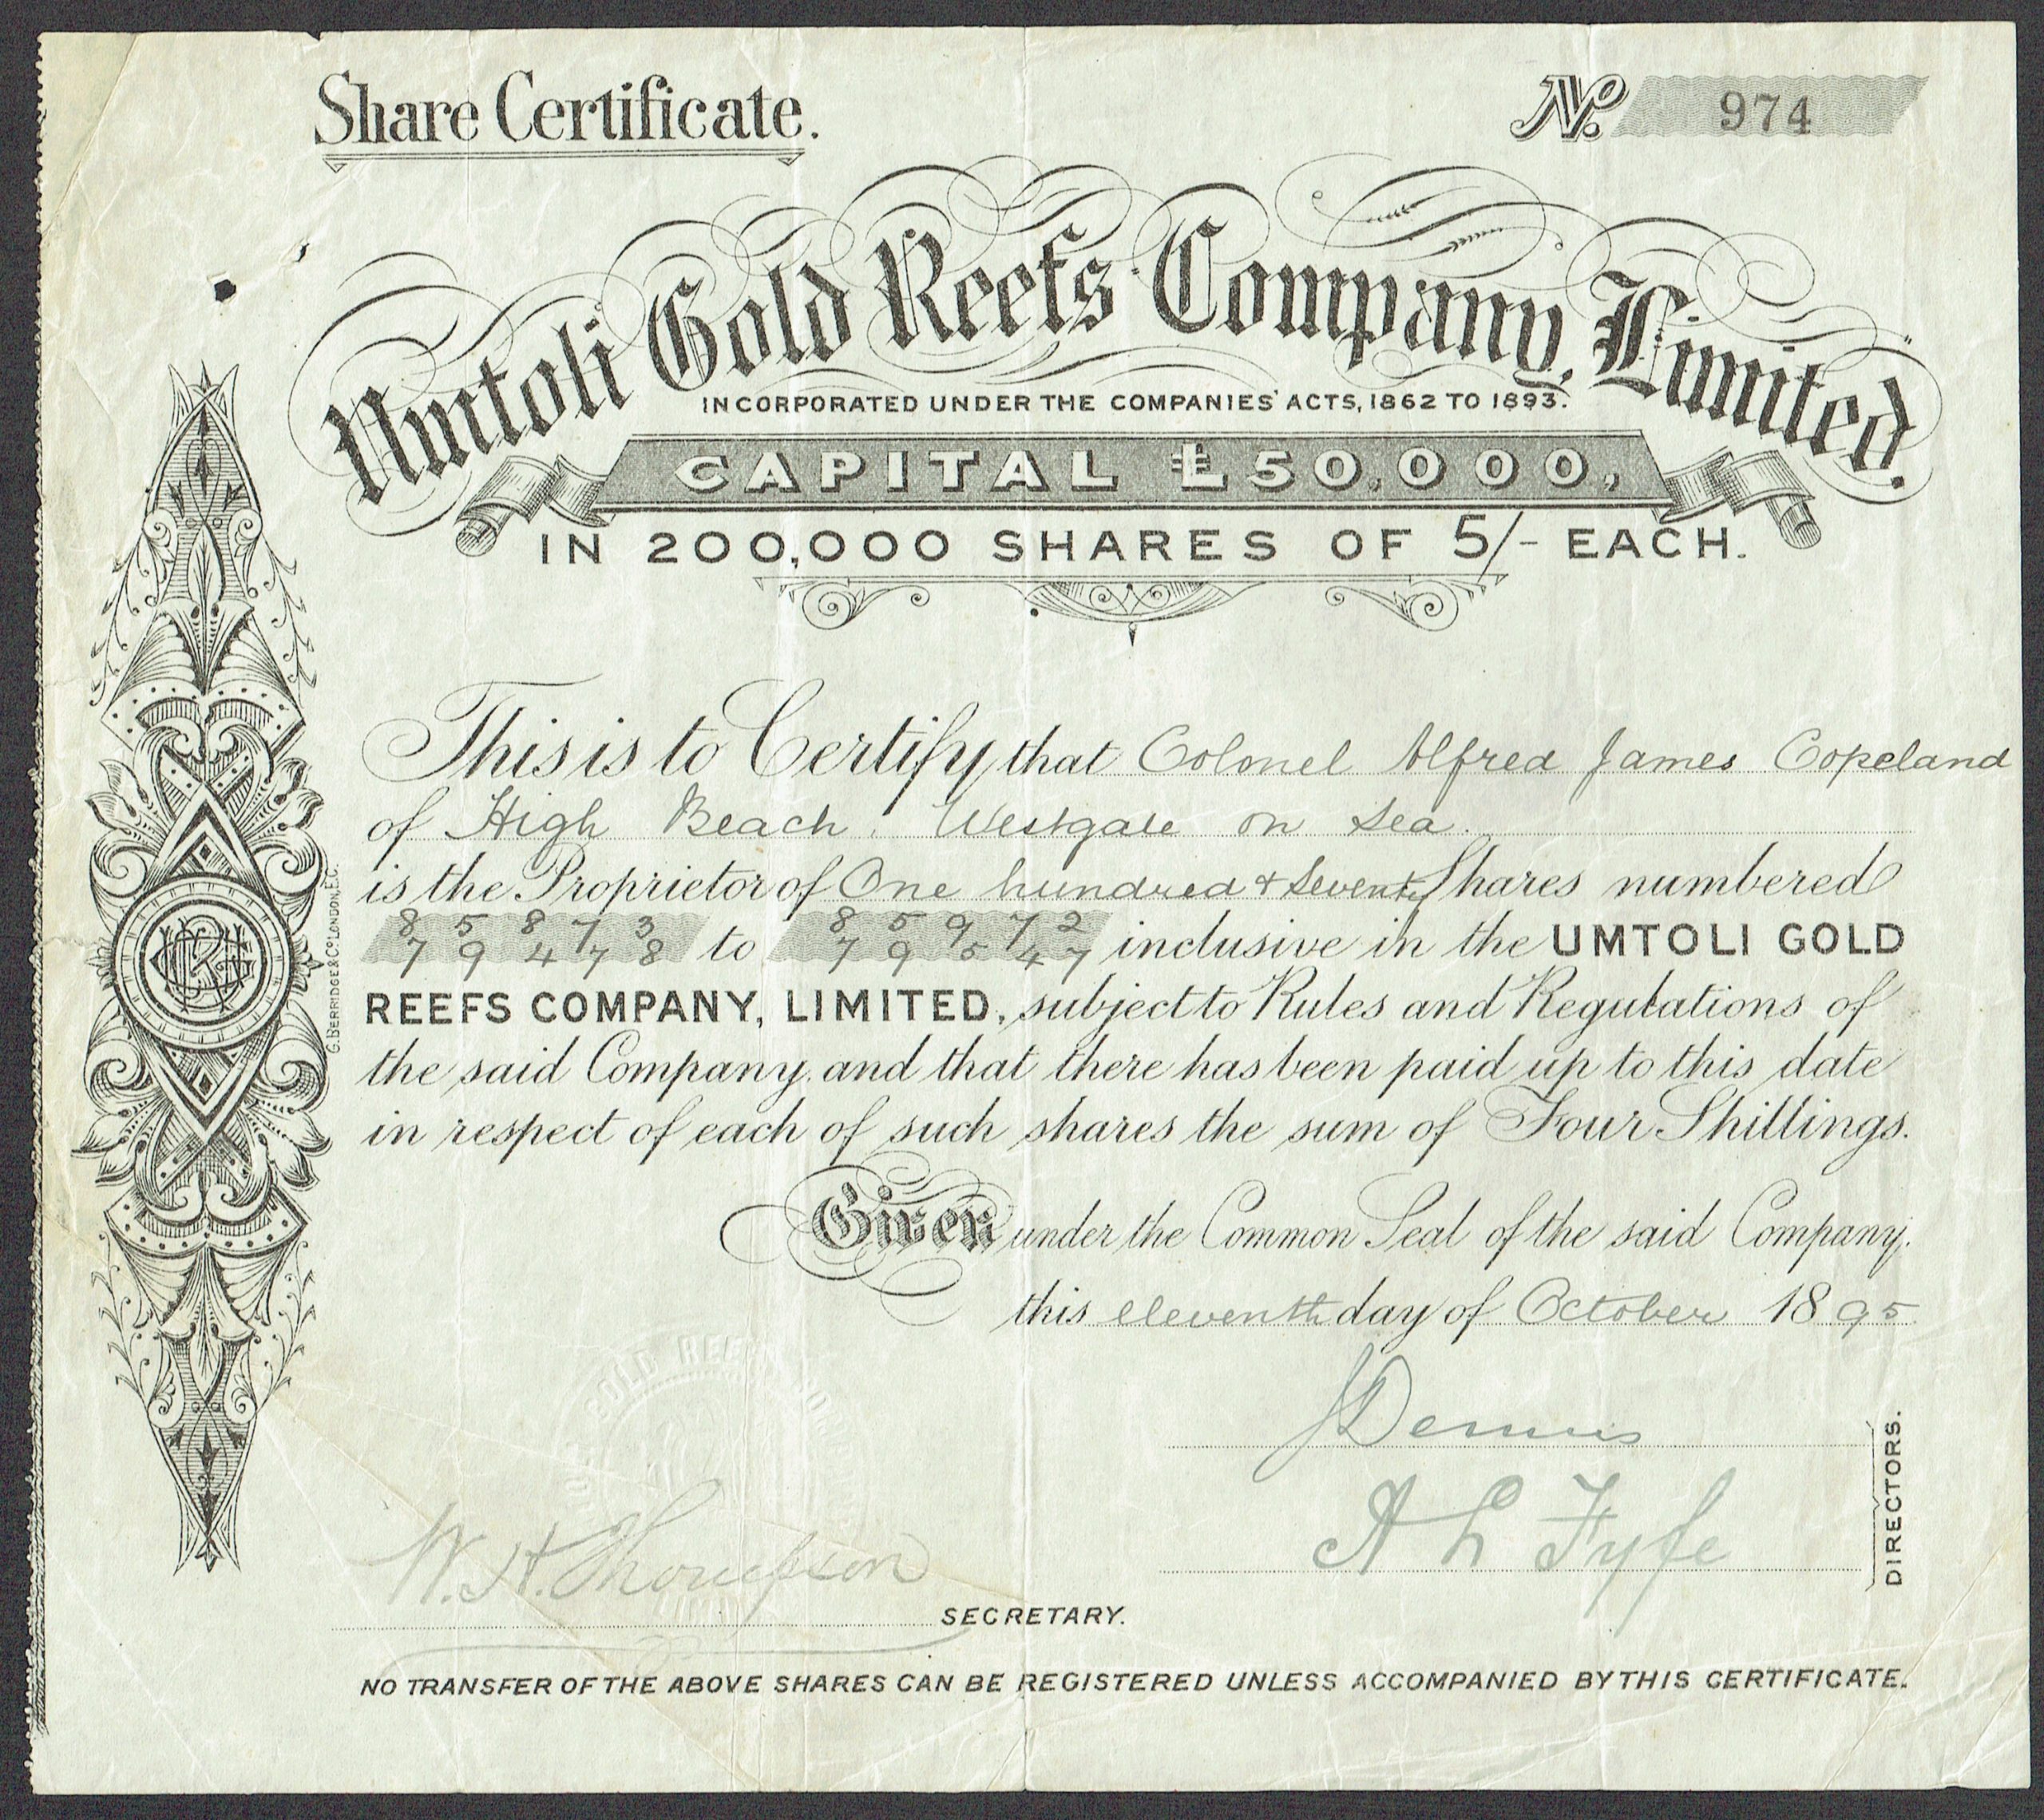 Share Certificate.
No. 974
Umtoli Gold Reefs Company, Limited.
INCORPORATED UNDER THE COMPANIES' ACTS, 1862 TO 1893.
CAPITAL £50,000,
IN 200,000 SHARES OF 5/- EACH.
This is to Certify that Colonel Alfred James Copeland
of High Beach, Westgate on Sea.
is the Proprietor of One hundred & seventy Shares numbered
85873 85972
79478 to 79547 inclusive in the UMTOLI GOLD
REEFS COMPANY, LIMITED, subject to Rules and Regulations of
the said Company, and that there has been paid up to this date
in respect of each of such shares the sum of Four Shillings.
Given under the Common Seal of the said Company.
this eleventh day of October 1895
J Dennis
A L Fyfe
DIRECTORS.
W. H. Thompson
SECRETARY.
NO TRANSFER OF THE ABOVE SHARES CAN BE REGISTERED UNLESS ACCOMPANIED BY THIS CERTIFICATE.
G. BERRIDGE & CO. LONDON, E.C.
GOLD REEFS COMPANY